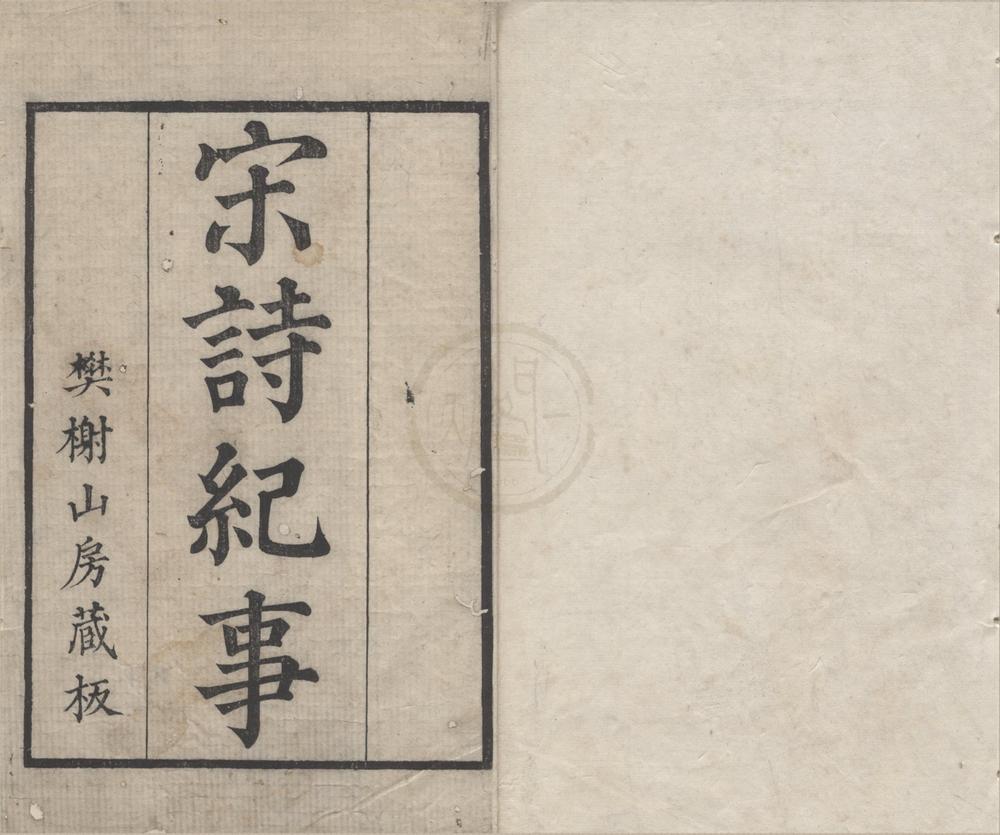 宋詩紀事
樊榭山房蔵板